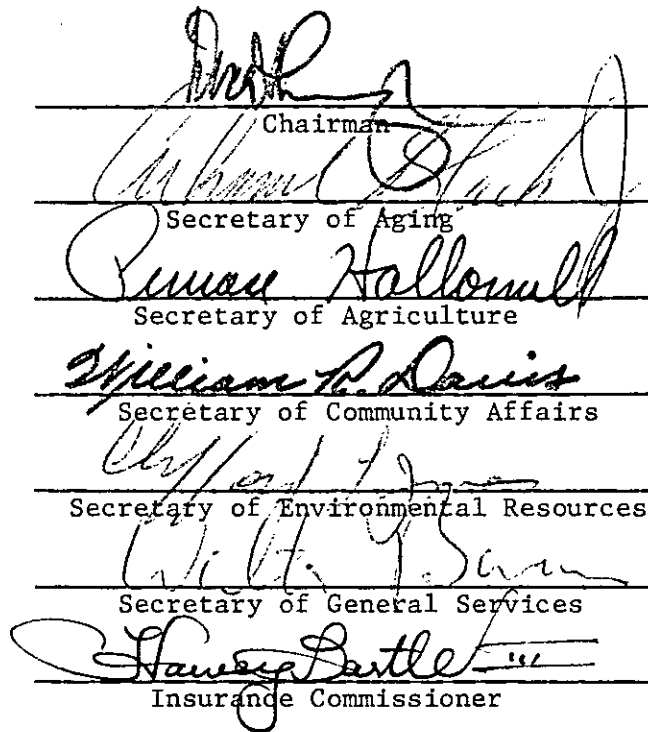 Chairman
Secretary of Aging
Penrose Hallowell
Secretary of Agriculture
William R. Davis
Secretary of Community Affairs
Clifford L. Jones
Secretary of Environmental Resources
Secretary of General Services
Harvey Bartle III
Insurance Commissioner